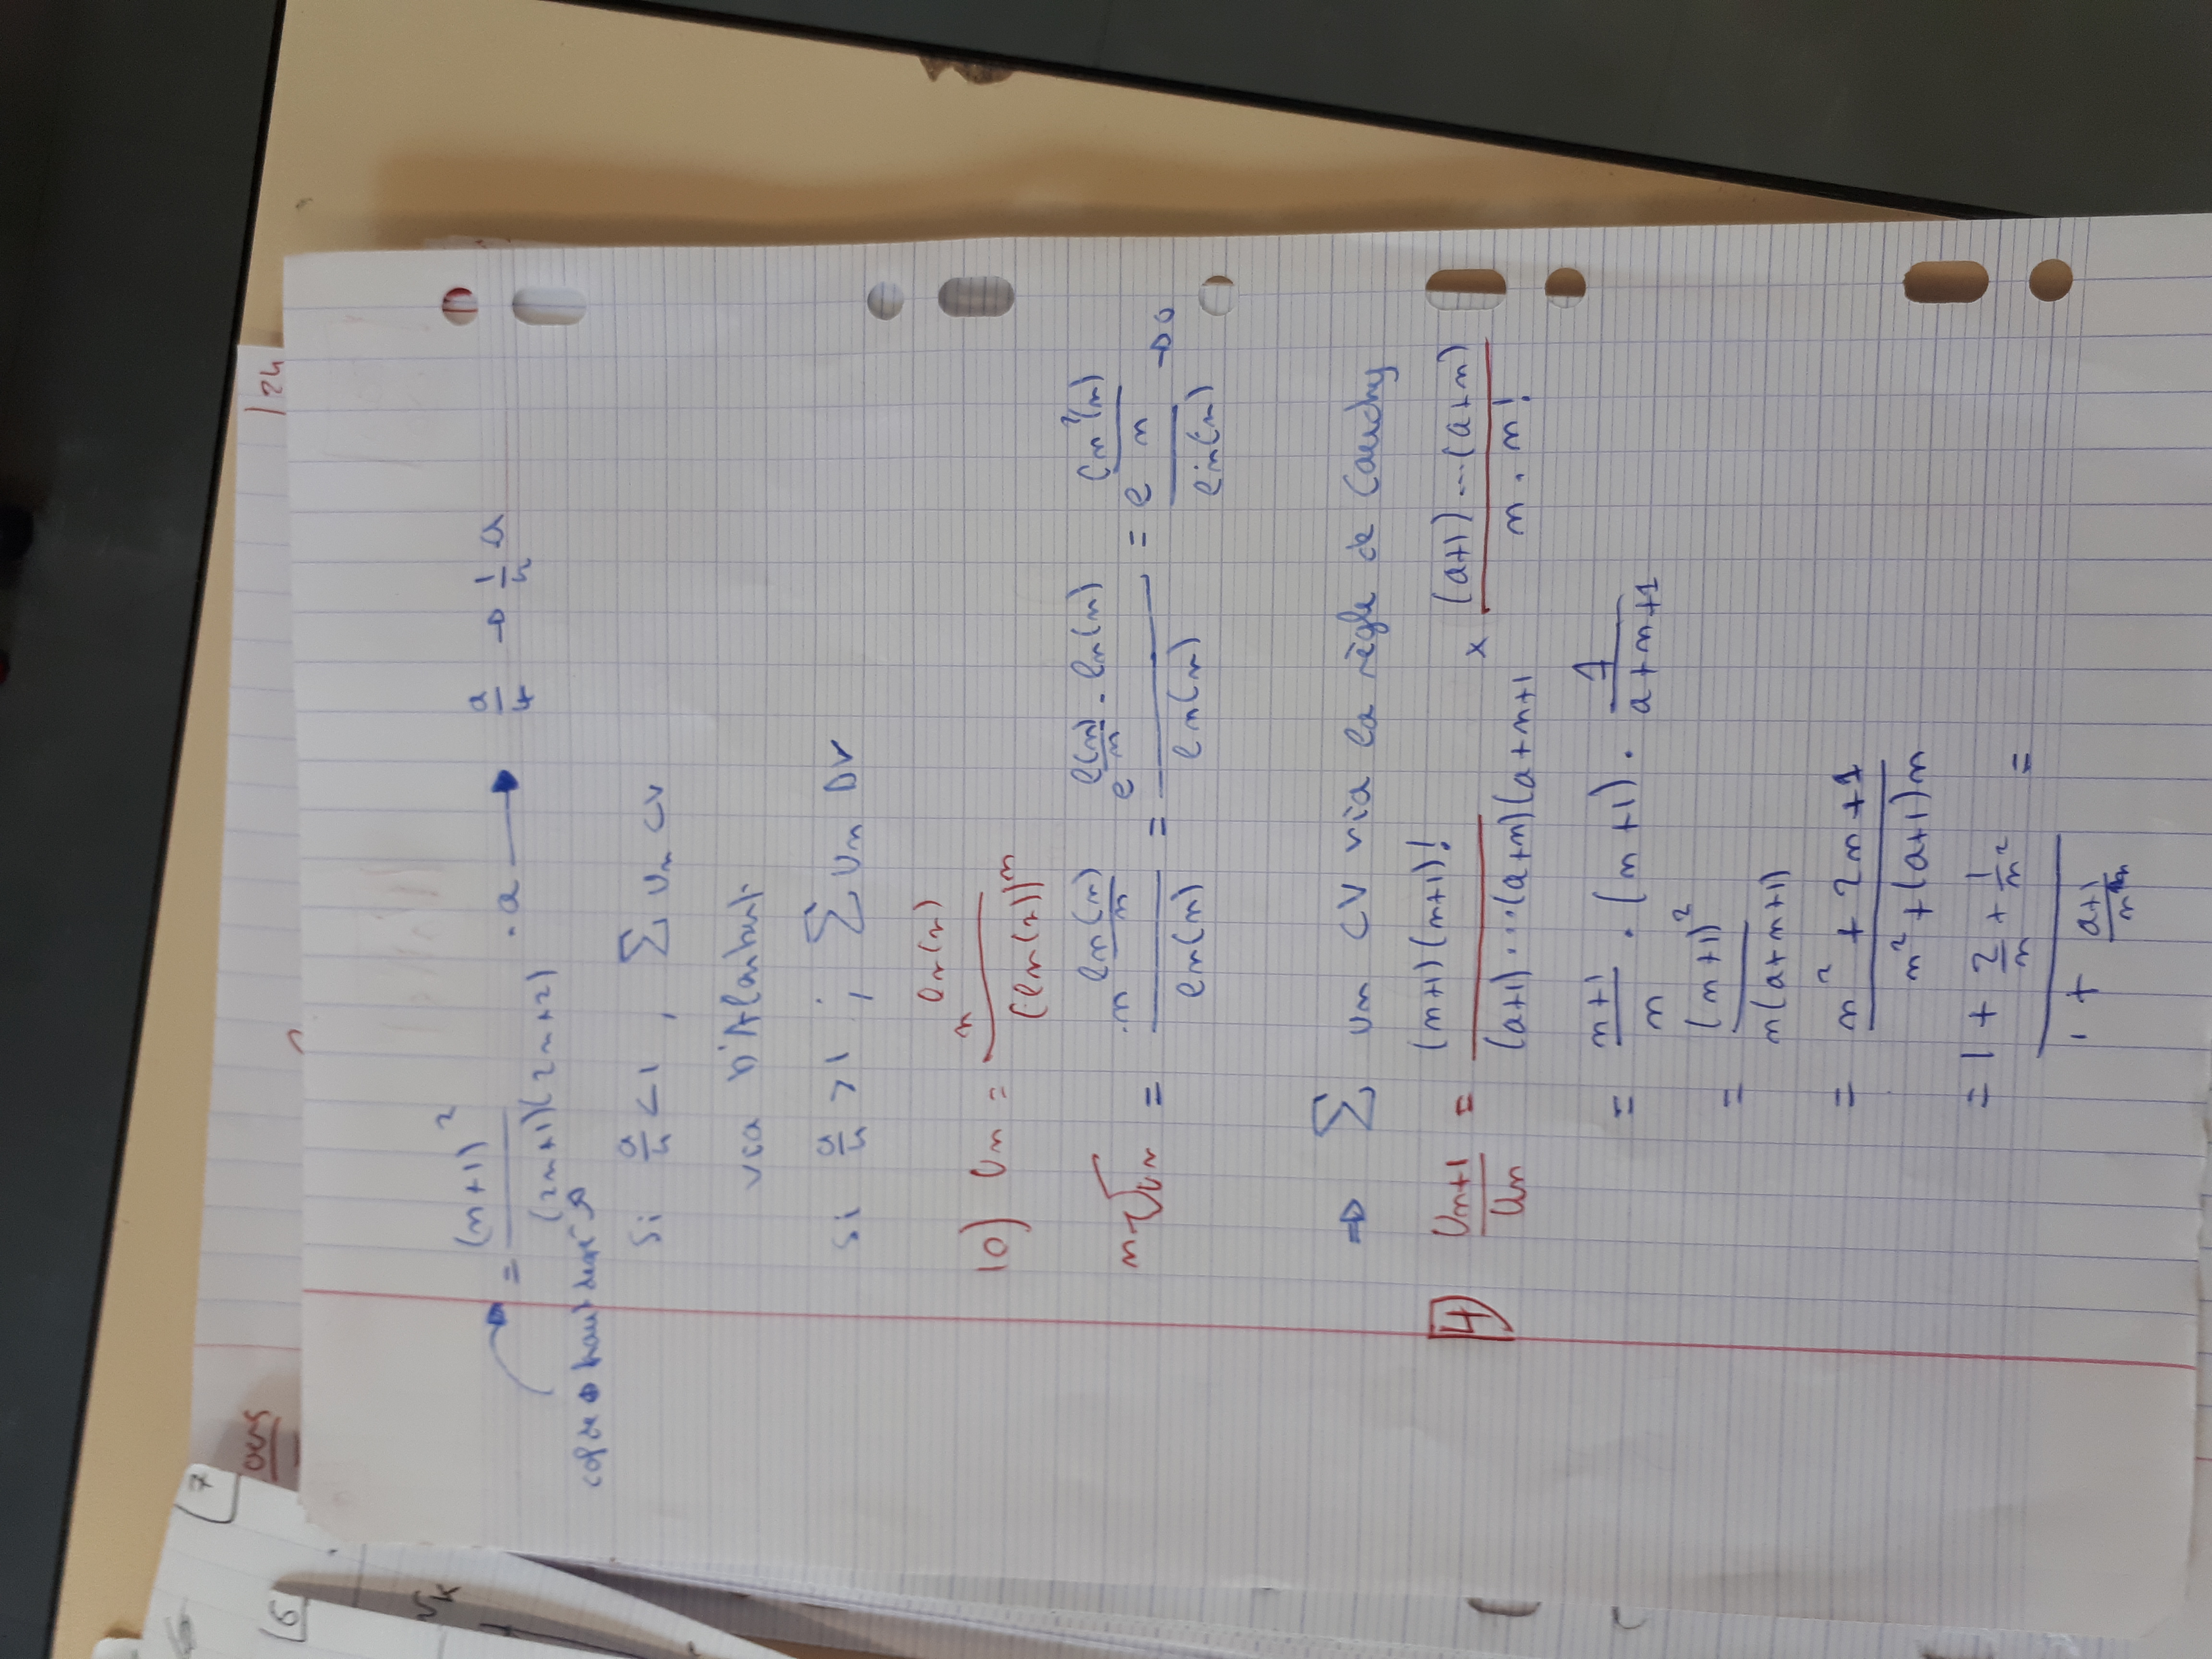 7
6
ours
/24
= (n+1)² / (2n+1)(2n+2) · a → a/4 → 1/4 a
haut
Si a/4 < 1, Σ Un CV
via D'Alembert
si a/4 > 1 ; Σ Un DV
10) Un = n^ln(n) / (ln(n))^n
ⁿ√Un = n^(ln(n)/n) / ln(n) = e^(l(n)/n · ln(n)) / ln(n) = e^(ln²(n)/n) / ln(n) → 0
⇒ Σ un CV via la règle de Cauchy
4 Un+1 / Un = (n+1)(n+1)! / (a+1)...(a+n)(a+n+1 × (a+1)...(a+n) / n . n!
= n+1 / n · (n+1) · 1 / a+n+1
= (n+1)² / n(a+n+1)
= n² + 2n + 1 / n² + (a+1)n
= 1 + 2/n + 1/n² / 1 + a+1/n =